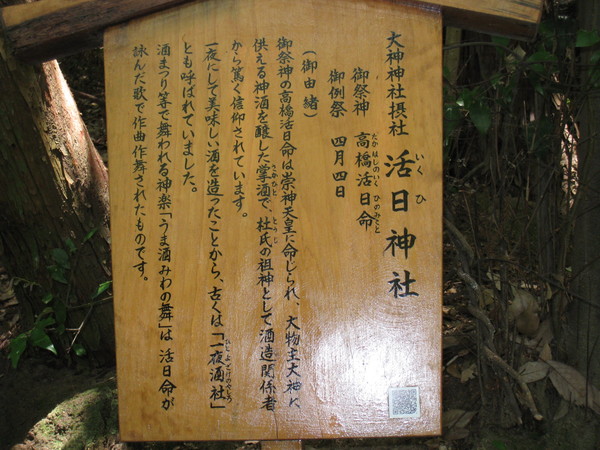 大神神社摂社 活日神社
いくひ
御祭神 高橋活日命
たかはしのいくひのみこと
御例祭 四月四日
(御由緒)
御祭神の高橋活日命は崇神天皇に命じられ、大物主大神に
供える神酒を醸した掌酒で、杜氏の祖神として酒造関係者
さかひと
とうじ
から篤く信仰されています。
一夜にして美味しい酒を造ったことから、古くは「一夜酒社」
とも呼ばれていました。
酒まつり等で舞われる神楽「うま酒みわの舞」は 活日命が
詠んだ歌で作曲作舞されたものです。